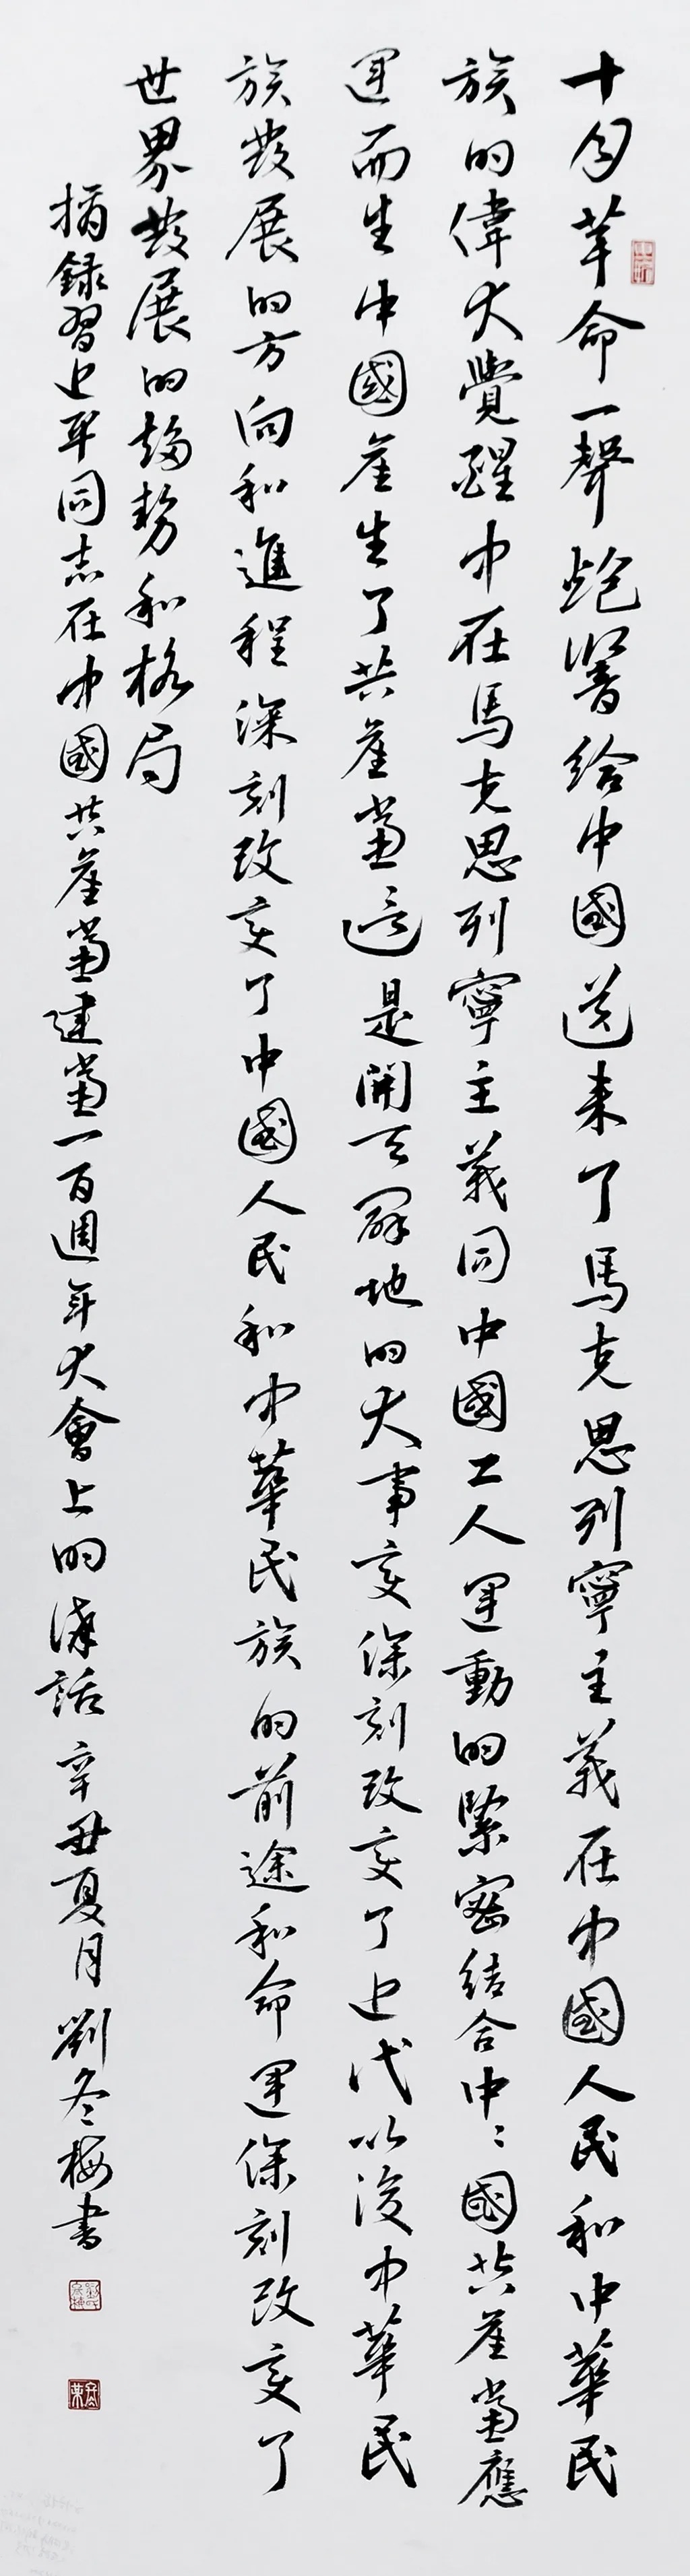 十月革命一聲炮響給中國送来了馬克思列寧主義在中國人民和中華民
族的偉大覺醒中在馬克思列寧主義同中國工人運動的緊密結合中〻國共產黨應
運而生中國產生了共產黨這是開天闢地的大事变深刻改变了近代以後中華民
族發展的方向和進程深刻改变了中國人民和中華民族的前途和命運深刻改变了
世界發展的趨勢和格局
摘録習近平同志在中國共產黨建黨一百週年大會上的講話 辛丑夏月 劉冬梅書